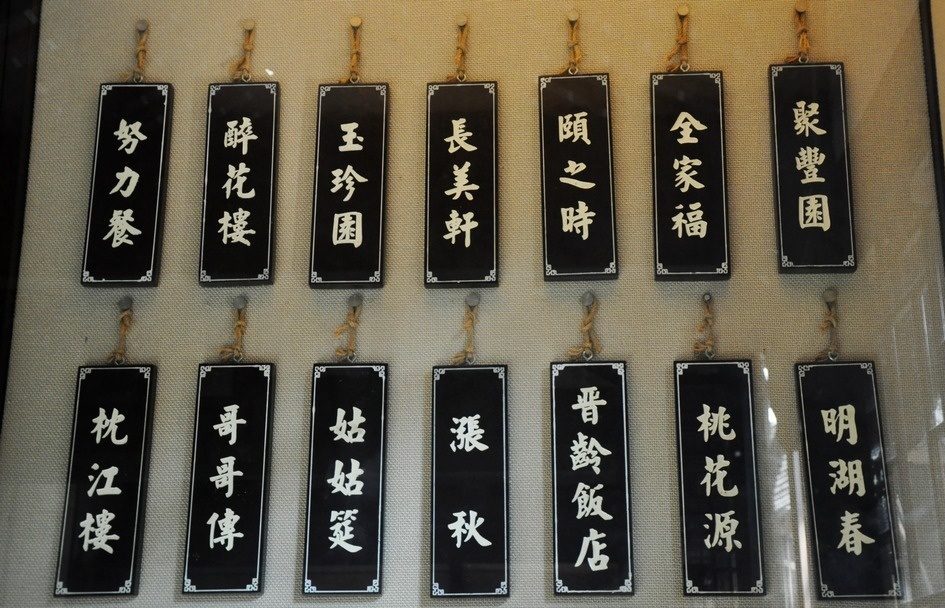 努力餐
醉花樓
玉珍園
長美軒
頤之時
全家福
聚豐園
枕江樓
哥哥傳
姑姑筵
漲秋
晋齡飯店
桃花源
明湖春